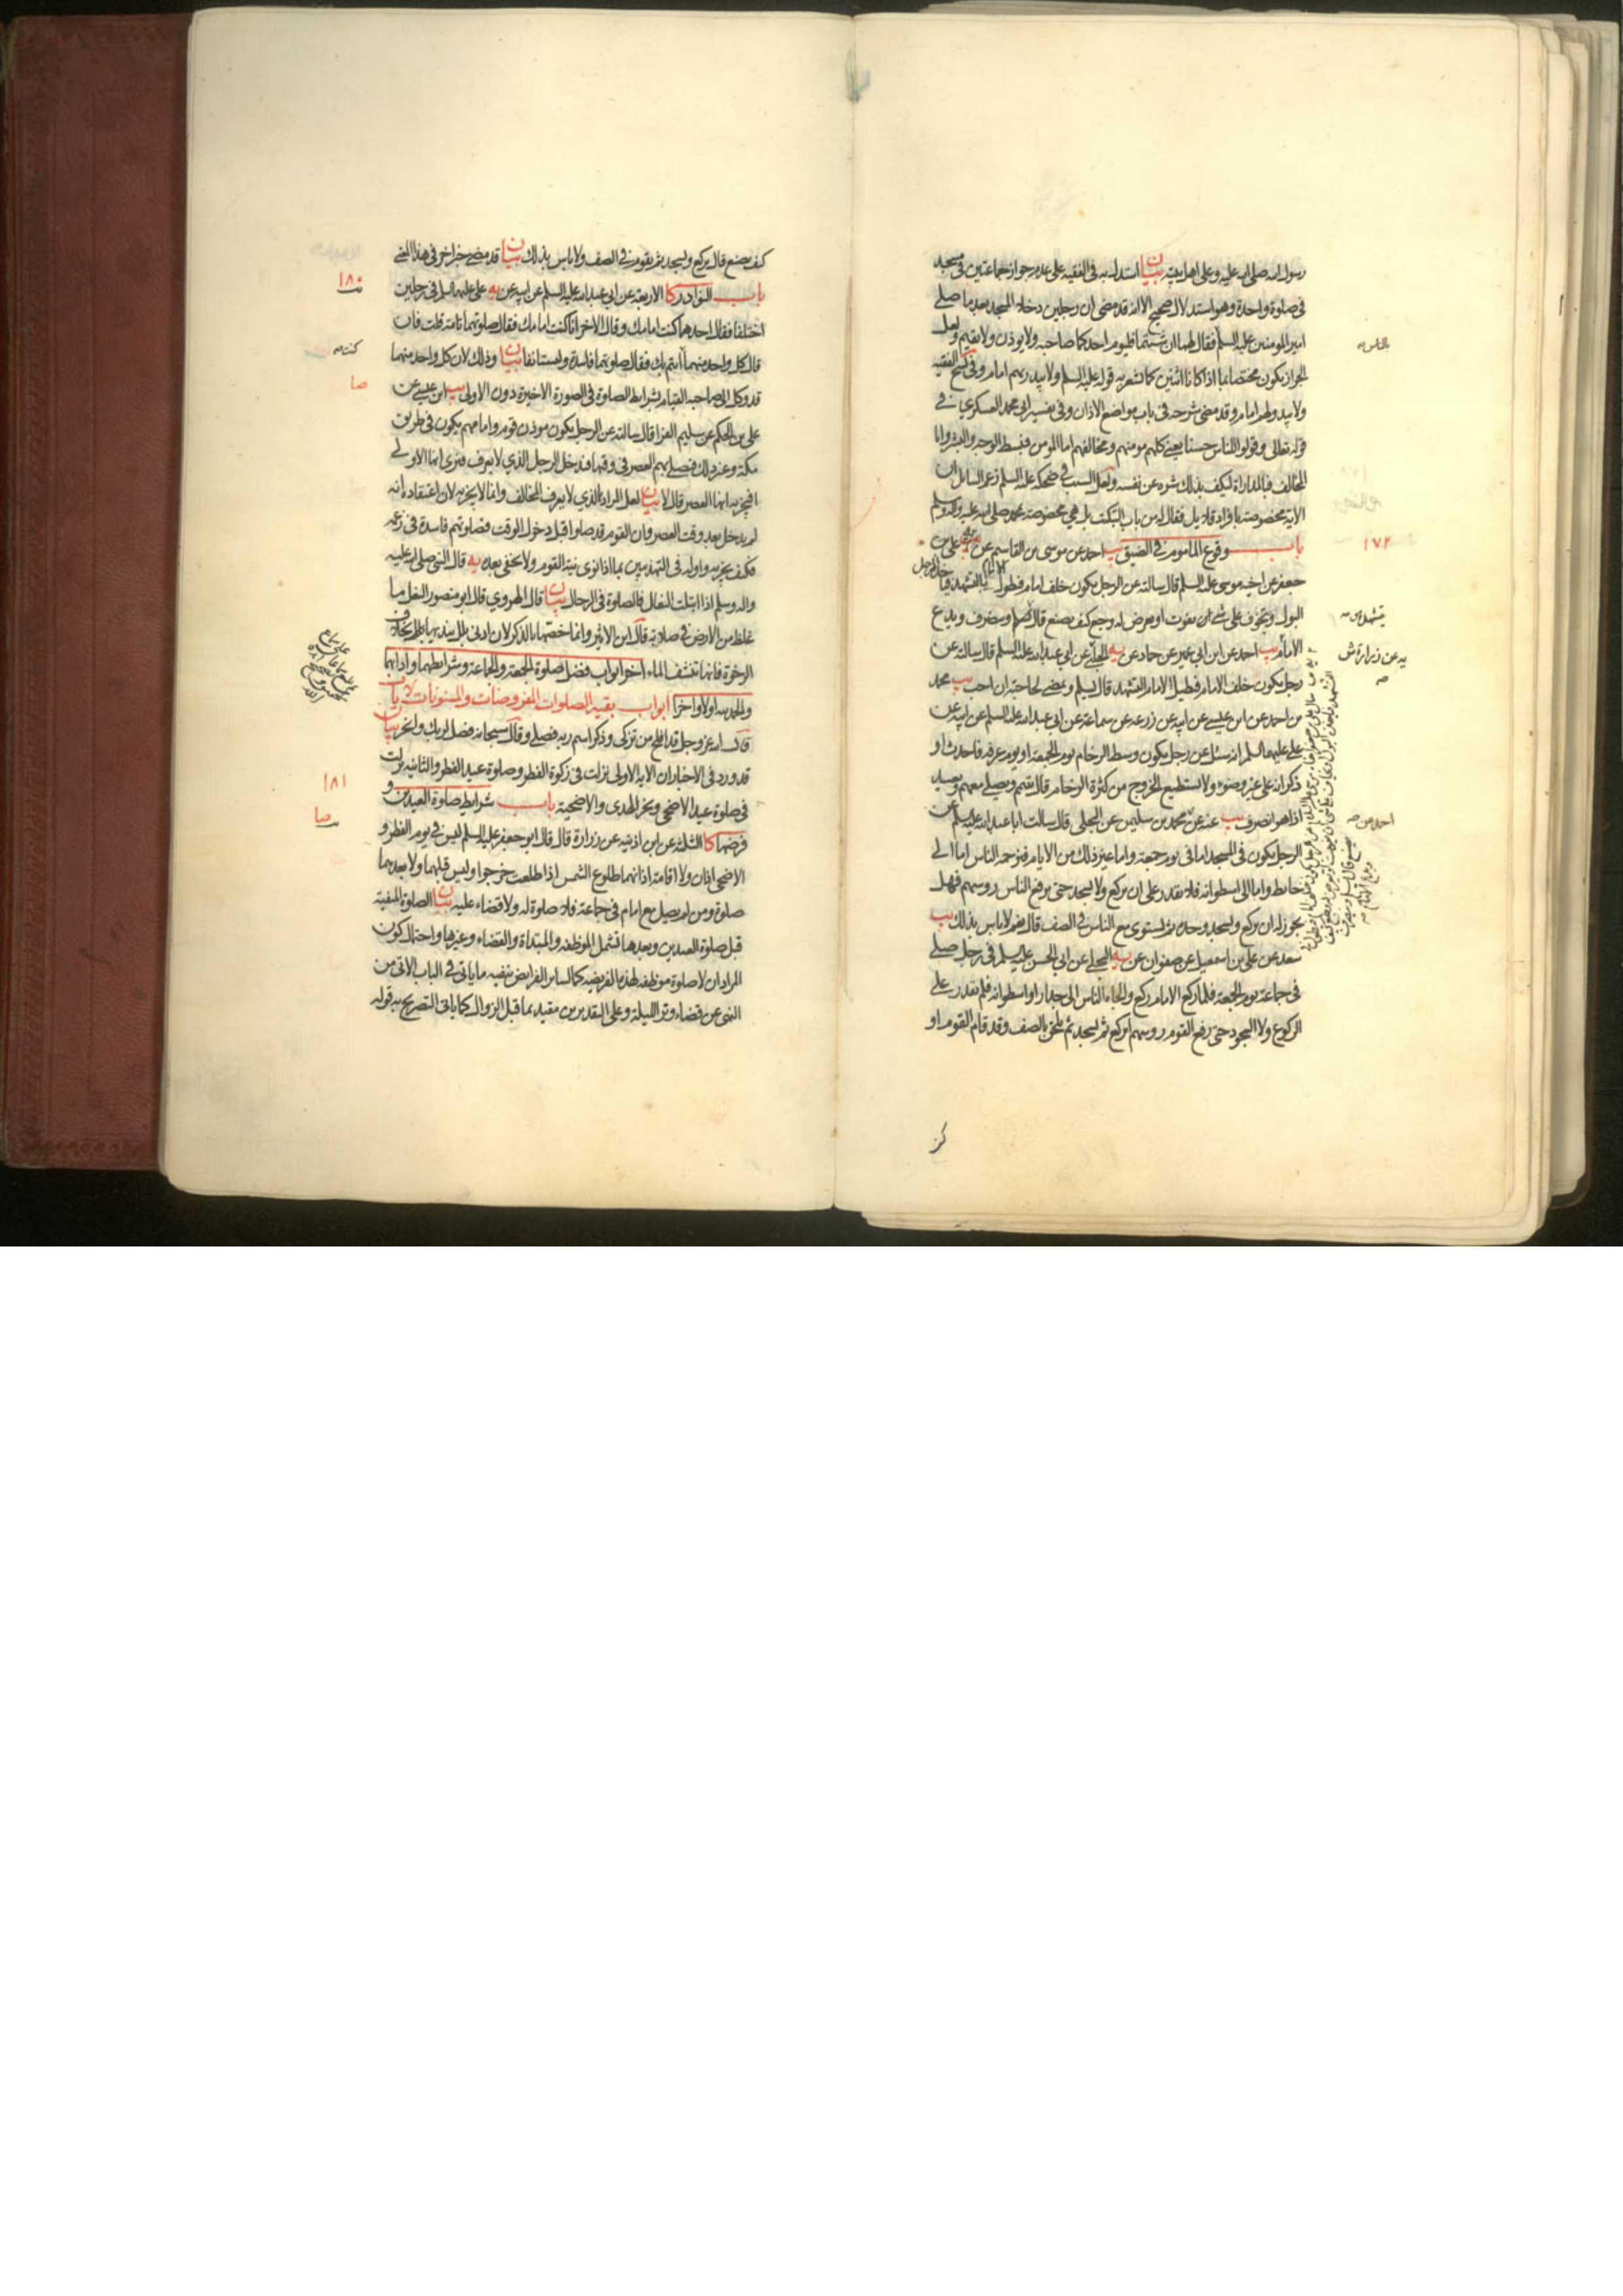 رسول الله صلى الله عليه وعلى اهل بيته بيان استدل به فى الفقيه على عدم جواز جماعتين فى مسجد
فى صلوة واحدة وهو استدلال صحيح الا انه قد مضى ان رجلين دخلا المسجد بعد ما صلى
امير المومنين عليه السلم فقال لهما ان شئتما فليوم احدكما صاحبه ولا يوذن ولا يقيم ولعل
الجواز يكون مختصا بما اذا كانا اثنين كما تشعر به قوله عليه السلم ولا يبدر بهم امام وفى نسخ الفقيه
ولا يبدو لهم امام وقد مضى شرحه فى باب مواضع الاذان وفى تفسير ابى محمد العسكرى ع فى
قوله تعالى وقولوا للناس حسنا يعنى كلهم مومنهم ومخالفهم اما المومن فيبسط الوجه والبشر واما
المخالف فبالمداراة ليكف بذلك شره عن نفسه ولعل السبب فى ضحكه عليه السلم زعم السائل ان
الاية مخصوصة بافراد قلايل فقال له من باب التبكيت بل هى مخصوصة بمحمد صلى الله عليه واله وسلم
باب وقوع الماموم فى الضيق يب احمد عن موسى بن القاسم عن يه على بن
جعفر عن اخيه موسى عليه السلم قال سالته عن الرجل يكون خلف امام فيطول الامام بالتشهد فياخذ الرجل
البول ويتخوف على شئ ان يفوت او يعرض له وجع كيف يصنع قال يسلم وينصرف ويدع
الامام يب احمد عن ابن ابى عمير عن حماد عن يه الحلبى عن ابى عبد الله عليه السلم قال سالته عن
رجل يكون خلف الامام فيطيل الامام التشهد قال يسلم ويمضى لحاجته ان احب يب محمد
بن احمد عن ابن عيسى عن ابيه عن زرعة عن سماعة عن ابى عبد الله عليه السلم عن ابيه عن
على عليهما السلم انه سئل عن رجل يكون وسط الزحام يوم الجمعة او يوم عرفة فاحدث او
ذكر انه على غير وضوء ولا يستطيع الخروج من كثرة الزحام قال يتيمم ويصلى معهم ويعيد
اذا هو انصرف يب عنه عن محمد بن سليمن عن البجلى قال سالت ابا عبد الله عليه السلم عن
الرجل يكون فى المسجد اما فى يوم جمعة واما غير ذلك من الايام فيزحمه الناس اما الى
حايط واما الى اسطوانة فلا يقدر على ان يركع ولا يسجد حتى يرفع الناس روسهم فهل
يجوز له ان يركع ويسجد وحده ثم يستوى مع الناس فى الصف قال نعم لا باس بذلك يب
سعد عن على بن اسمعيل عن صفوان عن يه البجلى عن ابى الحسن عليه السلم فى رجل صلى
فى جماعة يوم الجمعة فلما ركع الامام ركع والجاه الناس الى جدار او اسطوانة فلم يقدر على
الركوع ولا السجود حتى رفع القوم روسهم ايركع ثم يسجد ثم يلحق بالصف وقد قام القوم او
بالناس صح
١٧٢
كيف يصنع قال يركع ويسجد ثم يقوم فى الصف ولا باس بذلك بيان قد مضى خبر اخر فى هذا المعنى
باب النوادر كا الاربعة عن ابى عبد الله عليه السلم عن ابيه عن يه على عليهما السلم فى رجلين
اختلفا فقال احدهما كنت امامك وقال الاخر انا كنت امامك فقال صلوتهما تامة قلت فان
قال كل واحد منهما انا ائتم بك فقال صلوتهما فاسدة وليستانفا بيان وذلك لان كل واحد منهما
قد وكل الى صاحبه القيام بشرايط الصلوة فى الصورة الاخيرة دون الاولى يب ابن عيسى عن
على بن الحكم عن سليم الفرا قال سالته عن الرجل يكون موذن قوم وامامهم يكون فى طريق
مكة وغير ذلك فيصلى بهم العصر فى وقتها فيدخل الرجل الذى لا يعرف فيرى انها الاولى
افيجزيه انها العصر قال لا بيان لعل المراد بالذى لا يعرف المخالف وانما لا يجزيه لان اعتقاده انه
لم يدخل بعد وقت العصر وان القوم قد صلوا قبل دخول الوقت فصلوتهم فاسدة فى زعمه
فكيف يجزيه واوله فى التهذيبين بما اذا نوى نية القوم ولا يخفى بعده يه قال النبى صلى الله عليه
واله وسلم اذا ابتلت النعال فالصلوة فى الرحال بيان قال الهروى قال ابو منصور النعل ما
غلظ من الارض فى صلابة قال ابن الاثير وانما خصها بالذكر لان ادنى بلل ينديها بخلاف
الرخوة فانها تنشف الماء اخر ابواب فضل صلوة الجمعة والجماعة وشرايطهما وادابهما
والحمد لله اولا واخرا ابواب بقية الصلوات المفروضات والمسنونات الايات
قال الله عز وجل قد افلح من تزكى وذكر اسم ربه فصلى وقال سبحانه فصل لربك وانحر بيان
قد ورد فى الاخبار ان الاية الاولى نزلت فى زكوة الفطر وصلوة عيد الفطر والثانية نزلت
فى صلوة عيد الاضحى ونحر الهدى والاضحية باب شرايط صلوة العيدين و
فرضها كا الثلثة عن ابن اذينة عن زرارة قال قال ابو جعفر عليه السلم ليس فى يوم الفطر و
الاضحى اذان ولا اقامة اذانهما طلوع الشمس اذا طلعت خرجوا وليس قبلهما ولا بعدهما
صلوة ومن لم يصل مع امام فى جماعة فلا صلوة له ولا قضاء عليه بيان الصلوة المنفية
قبل صلوة العيدين وبعدها تشمل الموظفة والمبتداة والقضاء وغيرها واحتمال كون
المراد ان لا صلوة موظفة لهذه الفريضة كما لساير الفرايض ينفيه ما ياتى فى الباب الاتى من
النهى عن قضاء وتر الليلة وعلى التقديرين مقيد بما قبل الزوال كما ياتى التصريح به فى قوله
١٨٠
كنت صح
صا
١٨١
صا